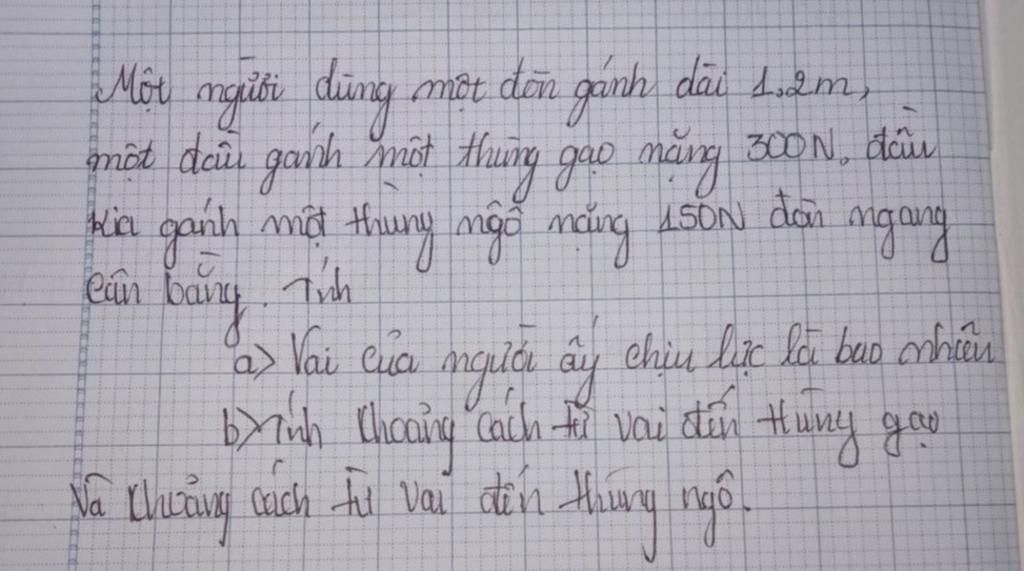 Một người dùng một đòn gánh dài 1,2m,
một đầu gánh một thùng gạo nặng 300N, đầu
kia gánh một thùng ngô nặng 150N đòn ngang
cân bằng. Tính
a) Vai của người ấy chịu lực là bao nhiêu
b) Tính khoảng cách từ vai đến thùng gạo
Và khoảng cách từ vai đến thùng ngô.